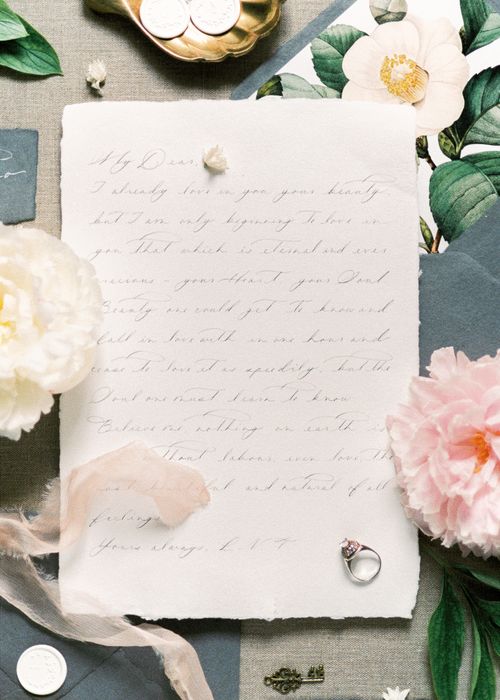 My Dear,
I already love in you your beauty,
but I am only beginning to love in
you that which is eternal and ever
precious - your Heart, your Soul.
Beauty one could get to know and
fall in love with in one hour and
cease to love it as speedily, but the
Soul one must learn to know.
Believe me, nothing on earth is
without labour, even love, the
most beautiful and natural of all
feelings.
Yours always, L.N.T